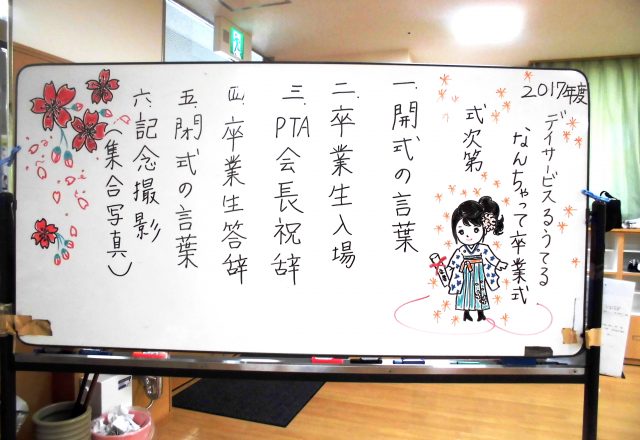 2017年度
デイサービスるうてる
なんちゃって卒業式
式次第
一.開式の言葉
二.卒業生入場
三.PTA会長祝辞
四.卒業生答辞
五.閉式の言葉
六.記念撮影
(集合写真)